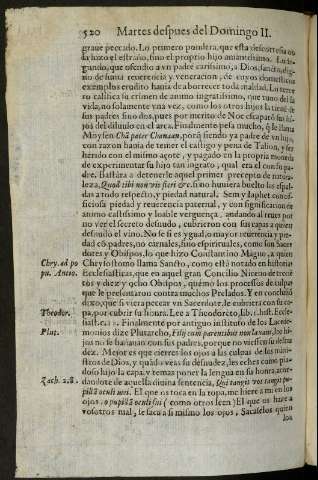 520 Martes despues del Domingo II.
graue pecado. Lo primero pondera, que esta descortesia no
la hizo el estraño, sino el proprio hijo amantissimo. Lo se-
gundo, que ofendio a vn padre carissimo, a Dios, sancto, dig-
no de suma reuerencia y veneracion, de cuyos domesticos
exemplos
vida, no solamente vna vez, como los otros hijos la tiene de
sus padres sino dos, pues por merito de Noe escapò sus hi-
jos del diluuio en el arca. Finalmente pesa mucho, que le llama
Moysen Chā pater Chanaam, porq̃ siendo ya padre de vn hijo,
con razon hauia de temer el castigo y pena de Talion, y ser
herido con el mismo açote, y pagado en la propria moneda
de experimentar su hijo tan ingrato, qual era el con su pa-
dre. Bastàra a detenerle aquel primer precepto de natura-
leza, Quod tibi non vis fieri &c. sino huuiera buelto las espal-
das a todo respecto, y piedad natural. Sem y Japhet con of-
ficiosa piedad y reuerencia paternal, y con significacion de
animo castissimo y loable verguença, andando al reues por
no ver el secreto desnudo, cubrieron con sus capas a quien
desnudo el vino. No se si es ygual, o mayor reuerencia y pie-
dad cō padres, no carnales, sino espirituales, como sun Sacer
dores y Obispos, lo que hizo Constantino Magno, a quien
Chry. ad po Chrysostomo llama Sancto, como està notado en historias
pu. Antio. Ecclesiasticas, que en aquel gran Concilio Niceno de trecie
tos y diez y ocho Obispos, quemò los processos de culpas
que le presentaron contra muchos Prelados. Y en conclusiō
dixo, que si viera pecar vn Sacerdote, le cubriera con su ca-
Theodor. pa, por cubrir su honra. Lee a Theodoreto, lib. 1. hist. Eccle-
siast. c. 11. Finalmente por antiguo instituto de los Lacede-
Plut. monios dize Plutarcho, Filij cum parentibus non lauant, los hi-
jos no se bañauan con sus padres, porque no viessen su desnu
dez. Mejor es que cierres los ojos a las culpas de los minis-
tros de Dios, y quādo veas su desnudez, les eches como pia-
doso hijo la capa, y temas poner la lengua en su honra, acor-
Zach. 2. 8. dandote de aquella diuina sentencia, Qui tangit vos tangit pu-
pillā oculi mei. El que os toca en la ropa, me hiere a mi en los
ojos, o pupillā oculi sui (como otros leen) El que os hare a
vosotros mal, se saca a si mismo los ojos, Sacaselos quien
los